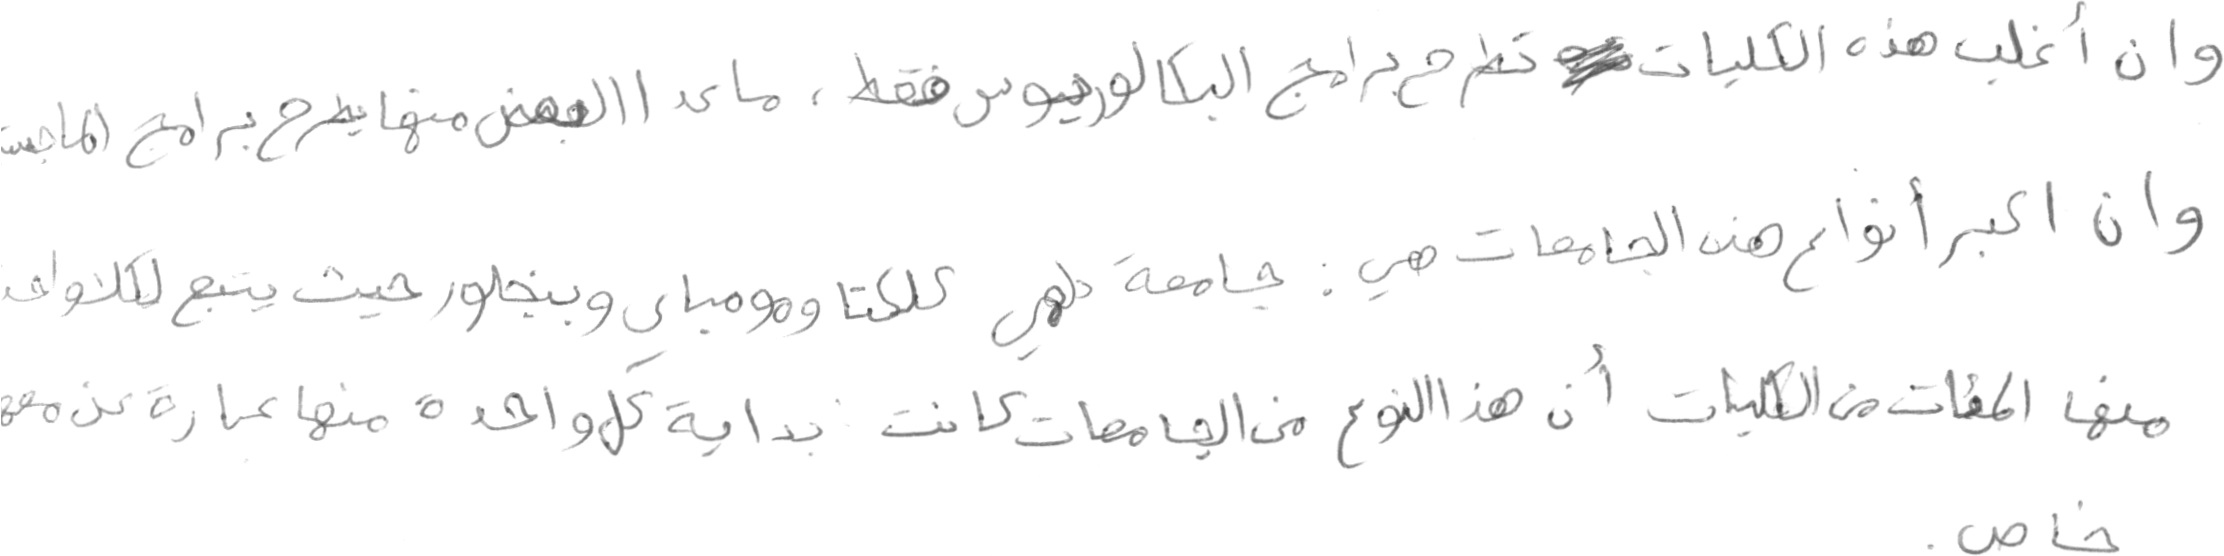 وان أغلب هذه الكليات تطرح برامج البكالوريوس فقط، ماعدا البعض منها يطرح برامج
وان اكبر أنواع هذه الجامعات هي: جامعة دلهي كلكتا ومومباي وبنجلور حيث يتبع
منها المئات من الكليات أن هذا النوع من الجامعات كانت بداية كل واحدة منها عبارة عن
خاص.